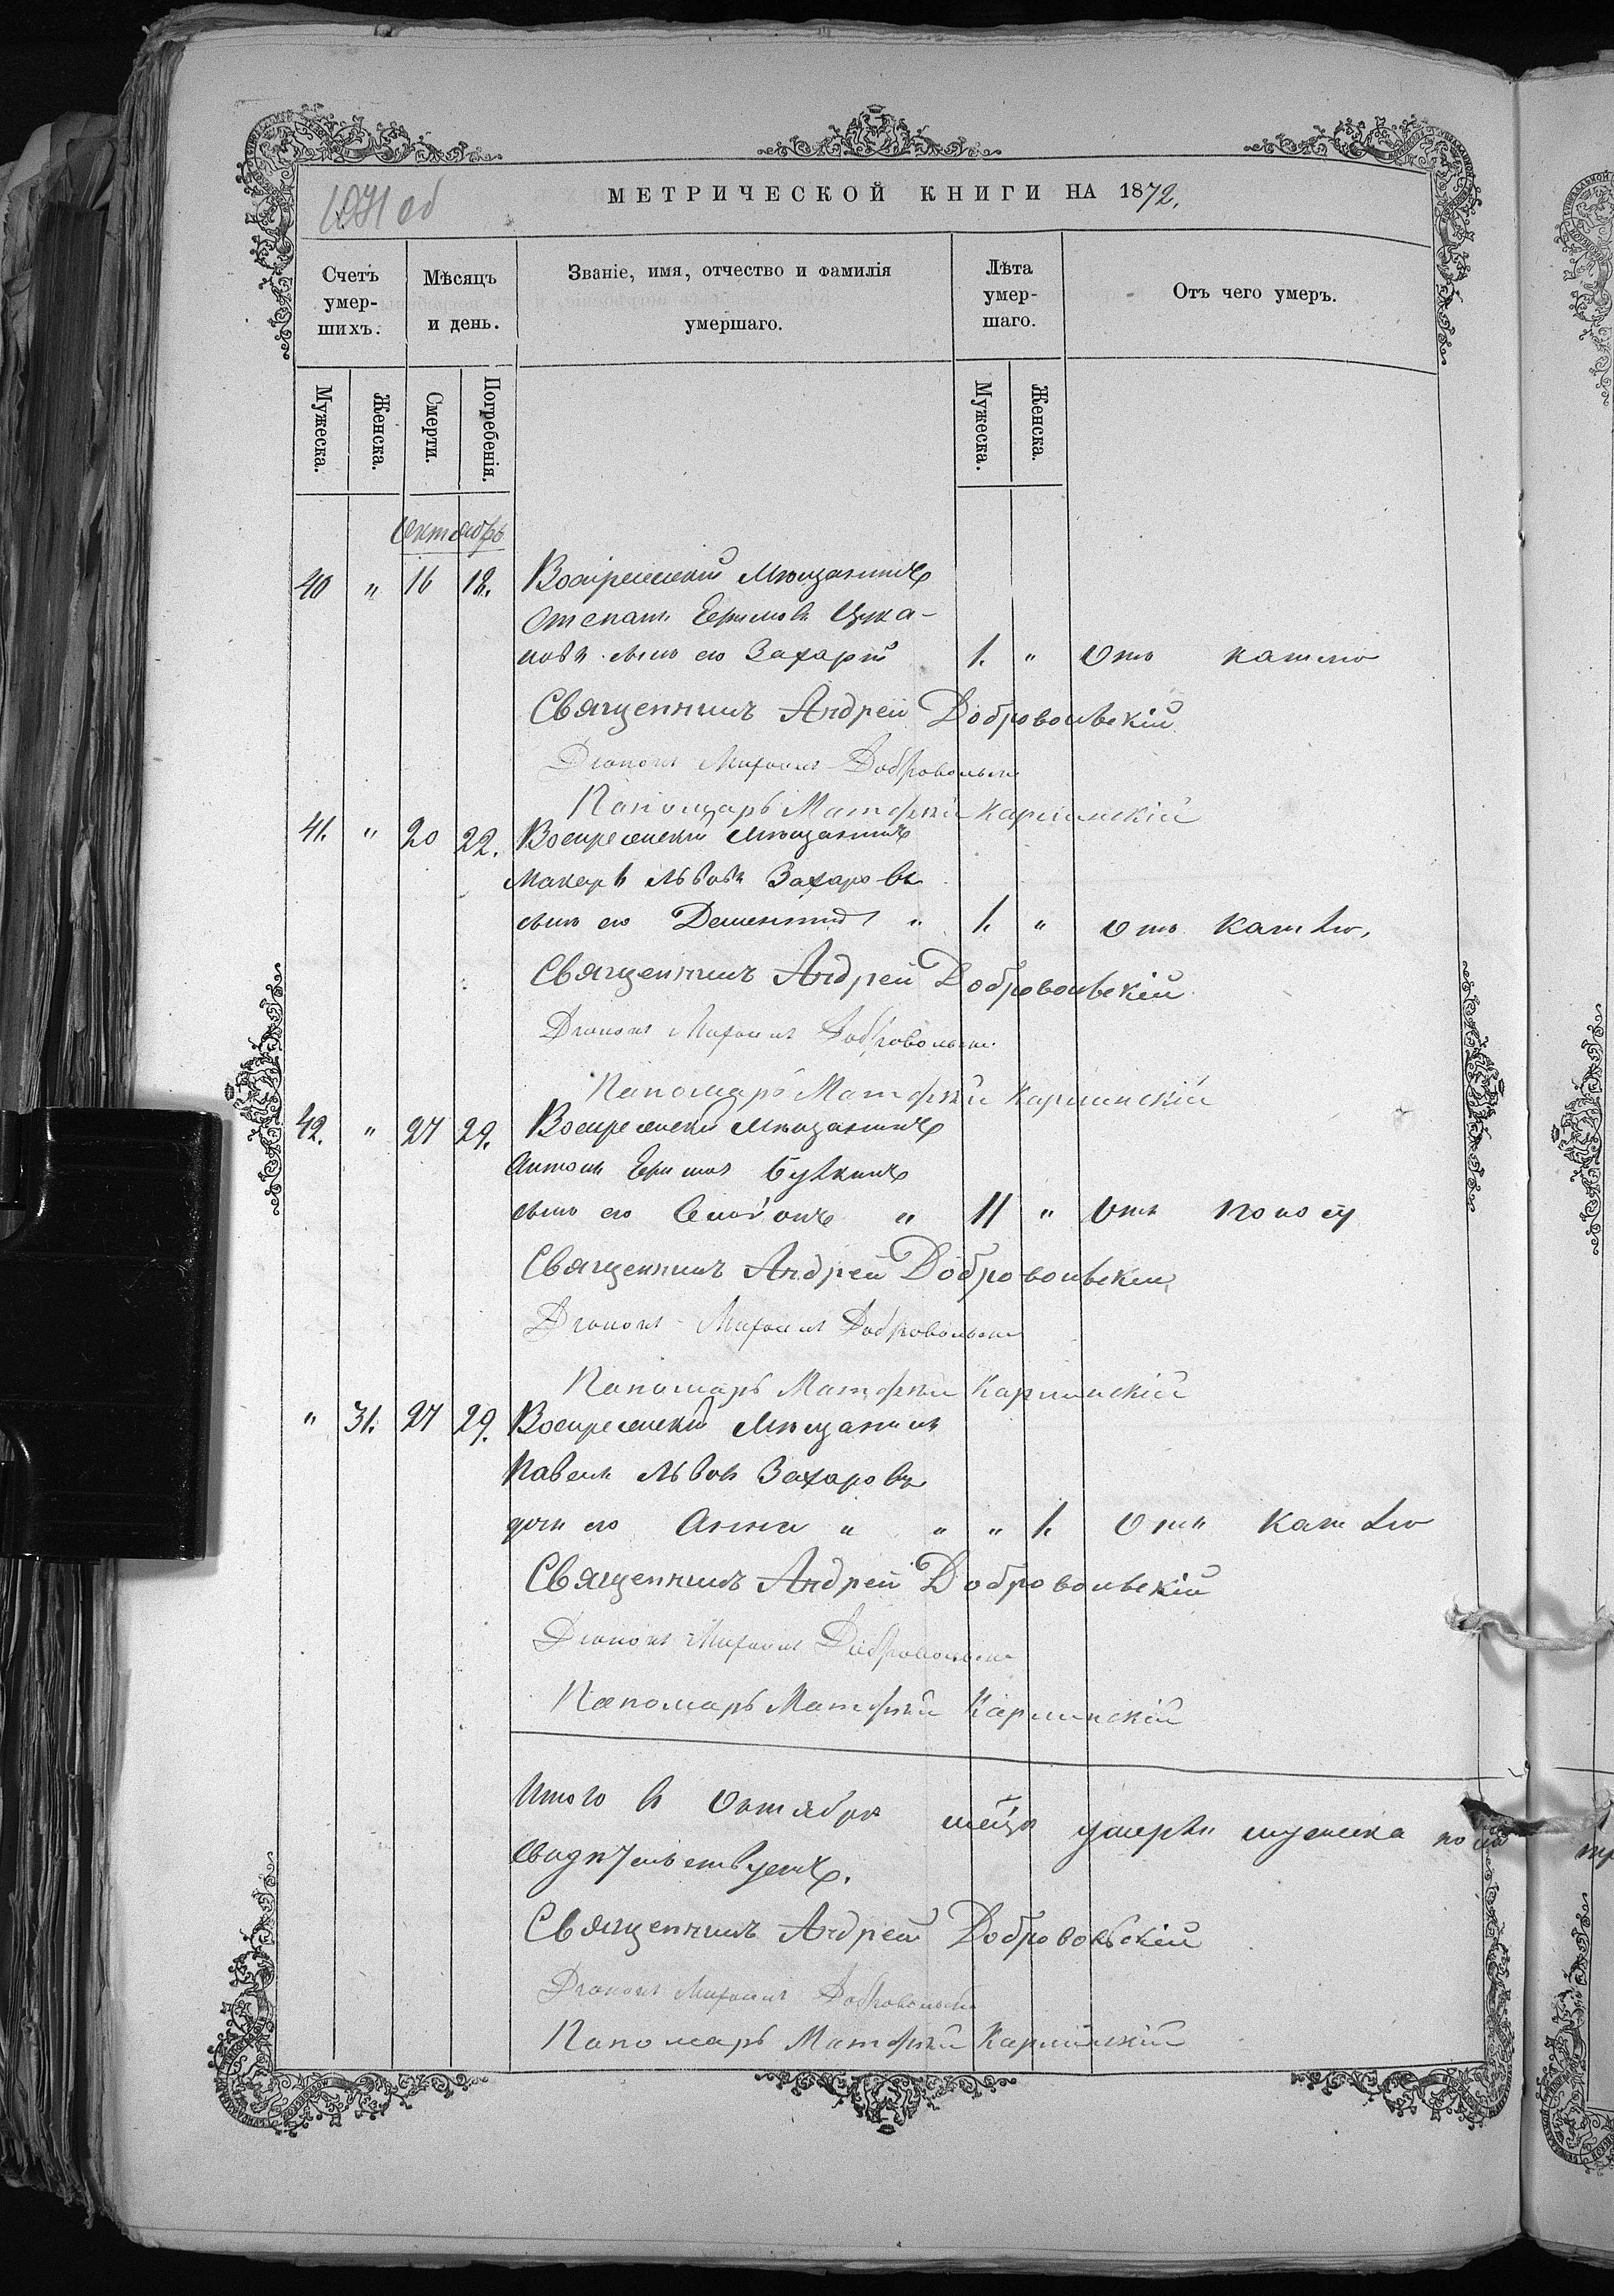 МЕТРИЧЕСКОЙ КНИГИ НА 1872.
Счетъ умер-шихъ.
Мѣсяцъ и день.
Званіе, имя, отчество и фамилія умершаго.
Лѣта умер-шаго.
Отъ чего умеръ.
Мужеска.
Женска.
Смерти.
Погребенія.
Мужеска.
Женска.
Октябрь
40 " 16 18. Воскресенскій Мѣщанинъ
Степанъ Ефимовъ Цука-
новъ сынъ его Захарій 1. " Отъ кашлю
Священникъ Андрей Добровольскій
Діаконъ Михаилъ Добровольскій
Пономарь Матфѣй Карпинскій
41. " 20 22. Воскресенскій Мѣщанинъ
Макаръ Львовъ Захаровъ
сынъ его Дементій " 1. " отъ кашлю,
Священникъ Андрей Добровольскій
Діаконъ Михаилъ Добровольскій
Пономарь Матфѣй Карпинскій
42. " 27 29. Воскресенскій Мѣщанинъ
Антонъ Ефимовъ
сынъ его " 11 " Отъ поносу
Священникъ Андрей Добровольскій
Діаконъ Михаилъ Добровольскій
Пономарь Матфѣй Карпинскій
" 31. 27 29. Воскресенскій Мѣщанинъ
Павелъ Львовъ Захаровъ
дочь его Анна " " " 1. Отъ кашлю
Священникъ Андрей Добровольскій
Діаконъ Михаилъ Добровольскій
Пономарь Матфѣй Карпинскій
Итого въ Октябрѣ умерш мужеска пола
свидѣтельствуемъ.
Священникъ Андрей Добровольскій
Діаконъ Михаилъ Добровольскій
Пономарь Матфѣй Карпинскій